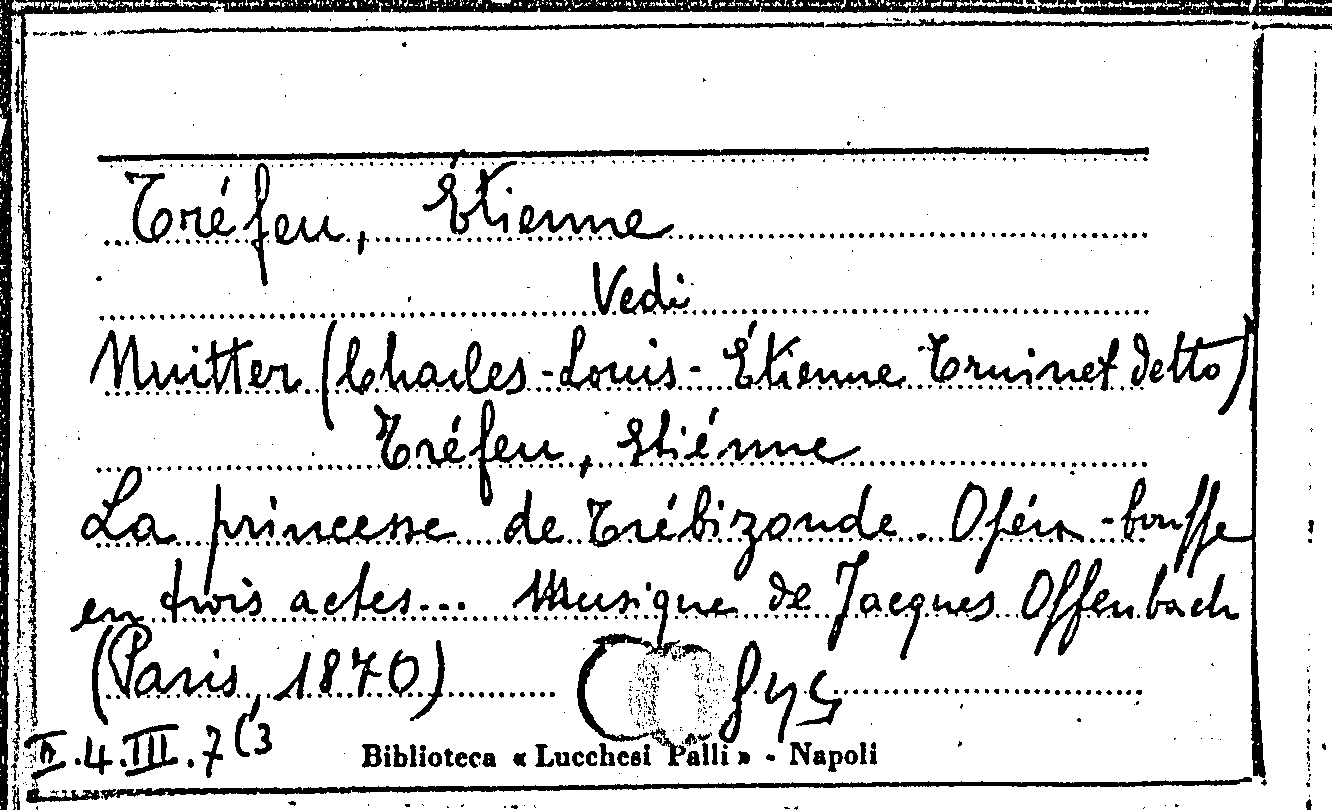 Tréfeu, Étienne
Vedi
Nuitter (Charles-Louis-Étienne Truinet detto)
Tréfeu, Etiénne
La princesse de Trébizonde. Opéra-bouffe
en trois actes... Musique de Jacques Offenbach
(Paris, 1870)
II.4.III.7(3
Biblioteca « Lucchesi Palli » - Napoli